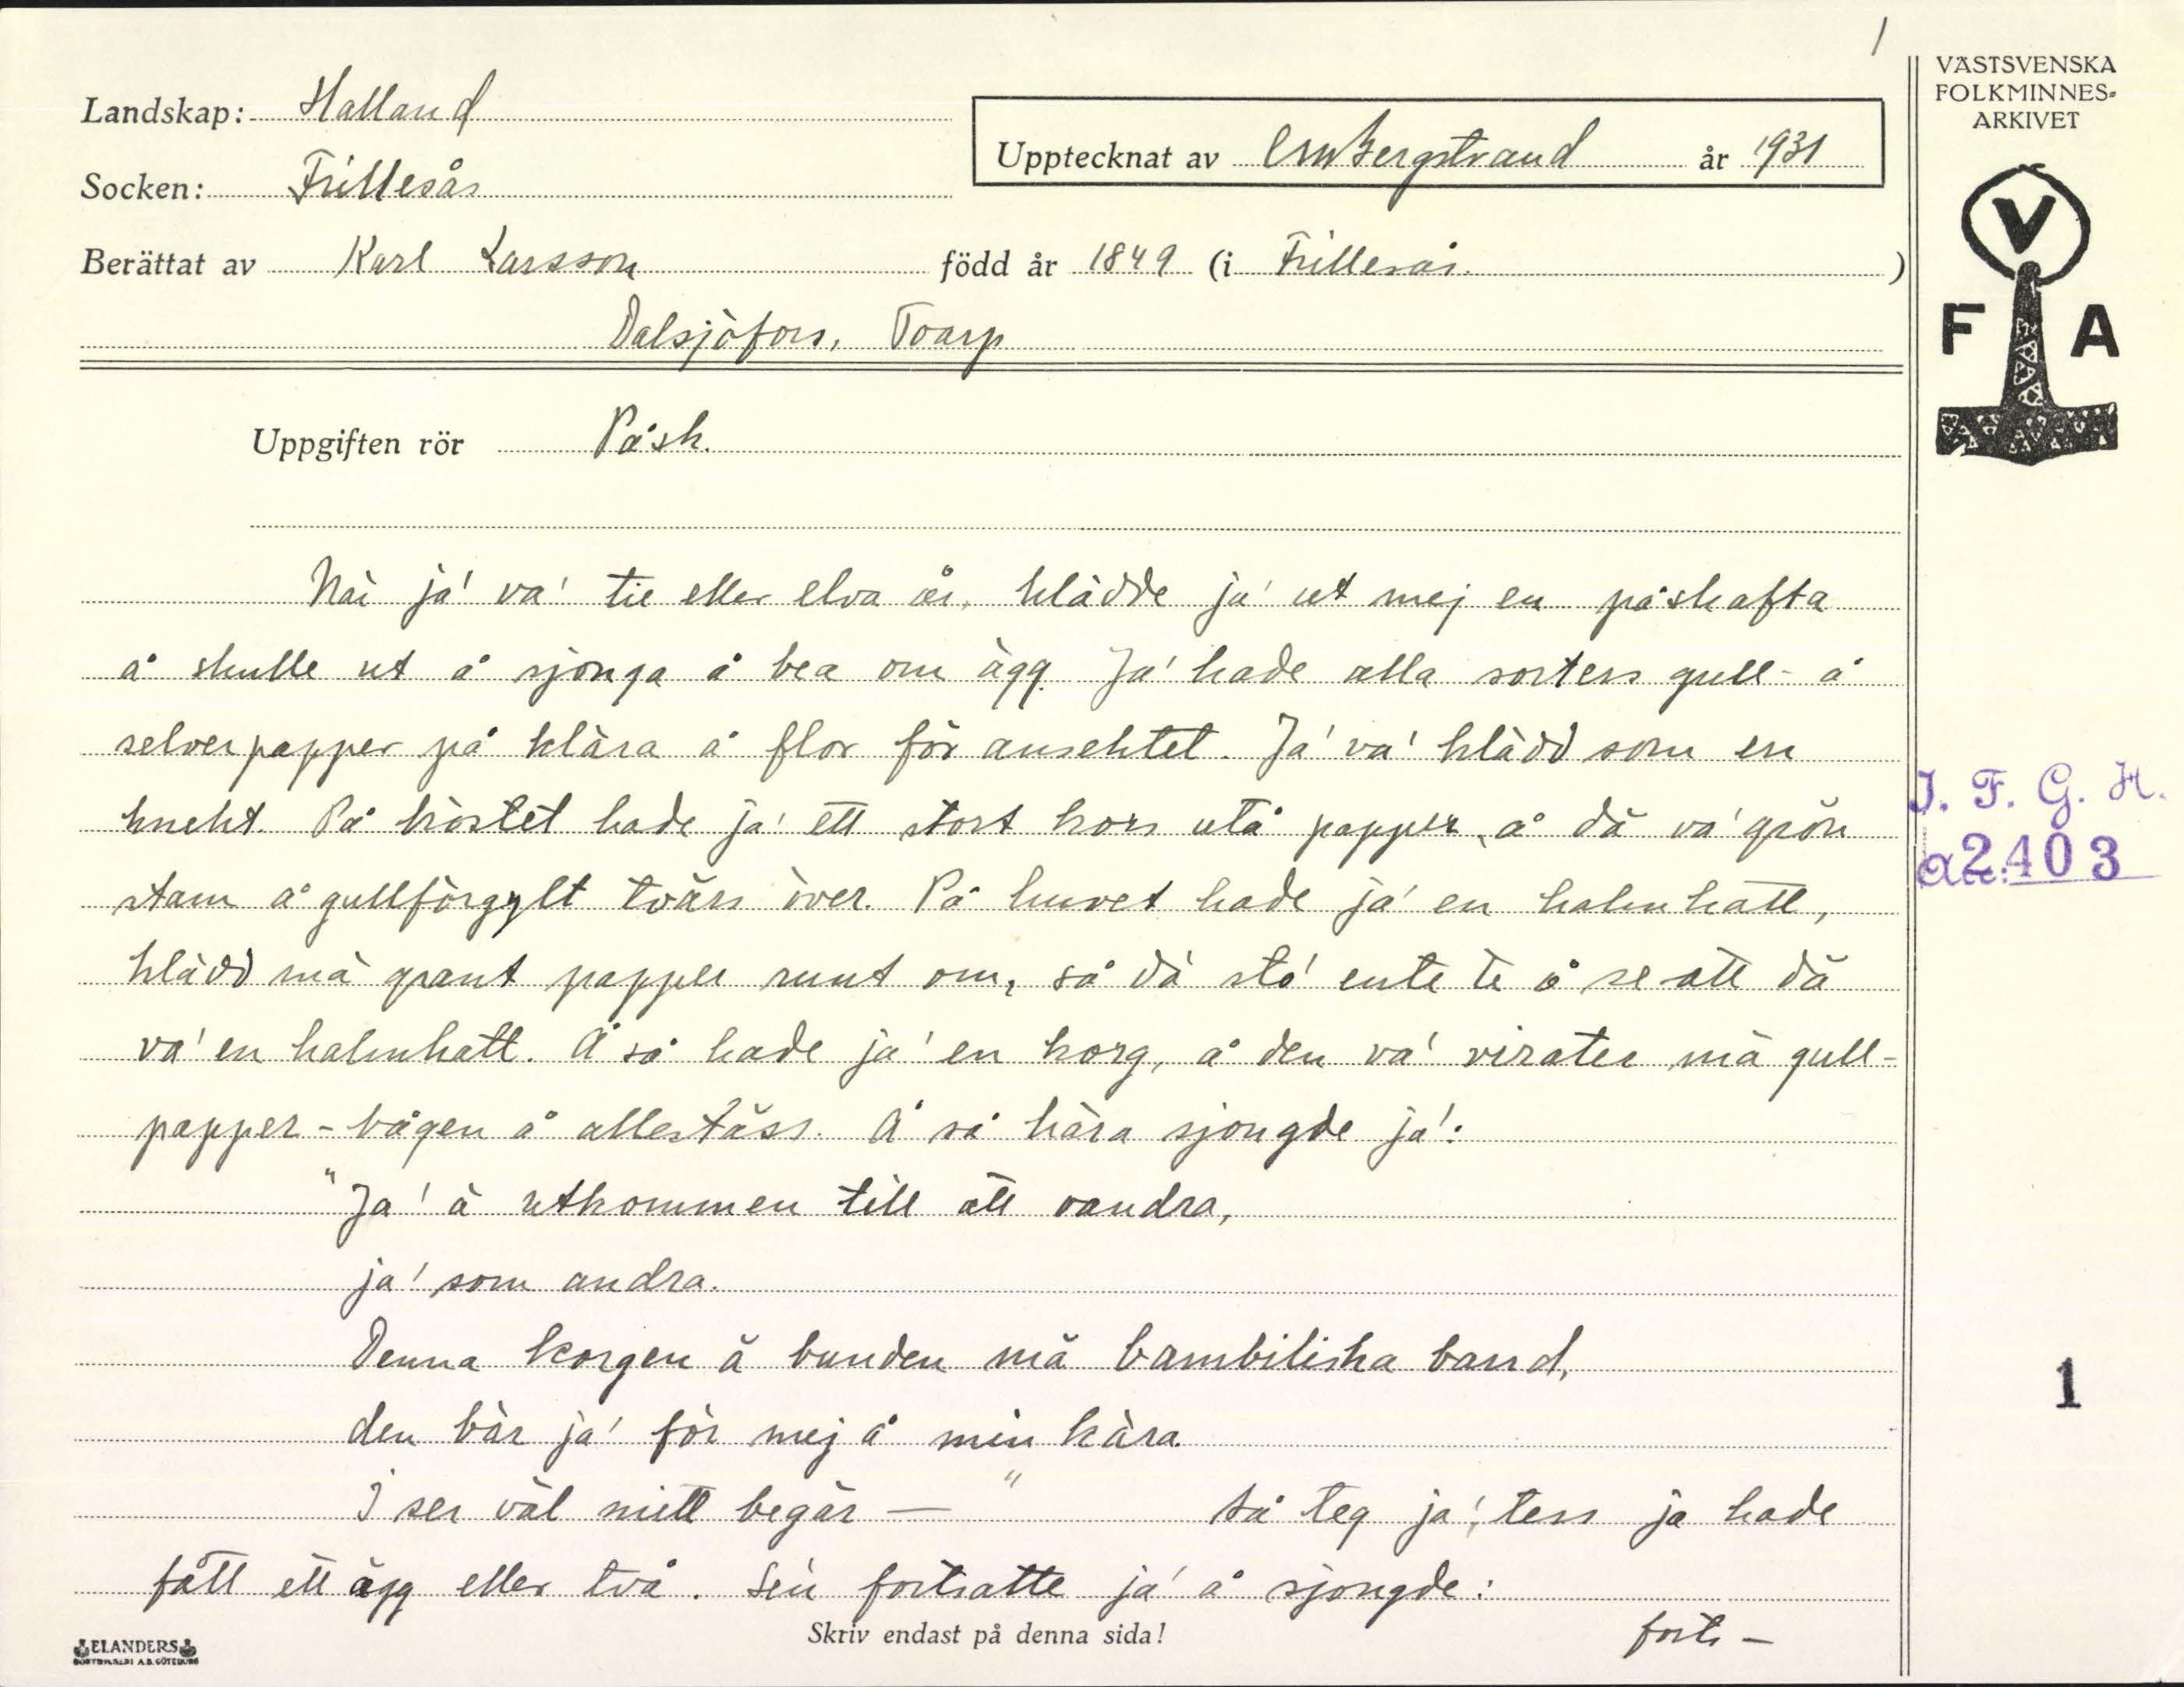 1
VÄSTSVENSKA
FOLKMINNES-
ARKIVET
Landskap: Halland
Upptecknat av CMBergstrand år 1931
Socken: Frillesås
Berättat av Karl Larsson född år 1849 (i Frillesås. )
Dalsjöfors, Toarp
V
F A
Uppgiften rör Påsk.
När ja' va' tie eller elva år, klädde ja' ut mej en påskafta
å skulle ut å sjonga å bea om ägg. Ja' hade alla sorters gull- å
selverpapper på klära å flor för ansektet. Ja' va' klädd som en
knekt. På bröstet hade ja' ett stort kors utå papper, å dä va' grön
stam å gullförgylt tvärs över. På huvet hade ja' en halmhatt,
klädd mä grant papper runt om, så dä sto' ente te å se att dä
va' en halmhatt. Å så hade ja' en korg, å den va' virater mä gull-
papper - bågen å allestäss. Å så hära sjongde ja':
"Ja' ä utkommen till att vandra,
ja' som andra.
Denna korgen ä bunden mä bambiliska band,
den bär ja' för mej å min kära.
I ser väl mitt begär — " Så teg ja', tess ja hade
fått ett ägg eller två. Sen fortsatte ja' å sjongde:
Skriv endast på denna sida!
forts -
ELANDERS
BOKTRYCKERI A.B. GÖTEBORG
I. F. G. H.
2403
1